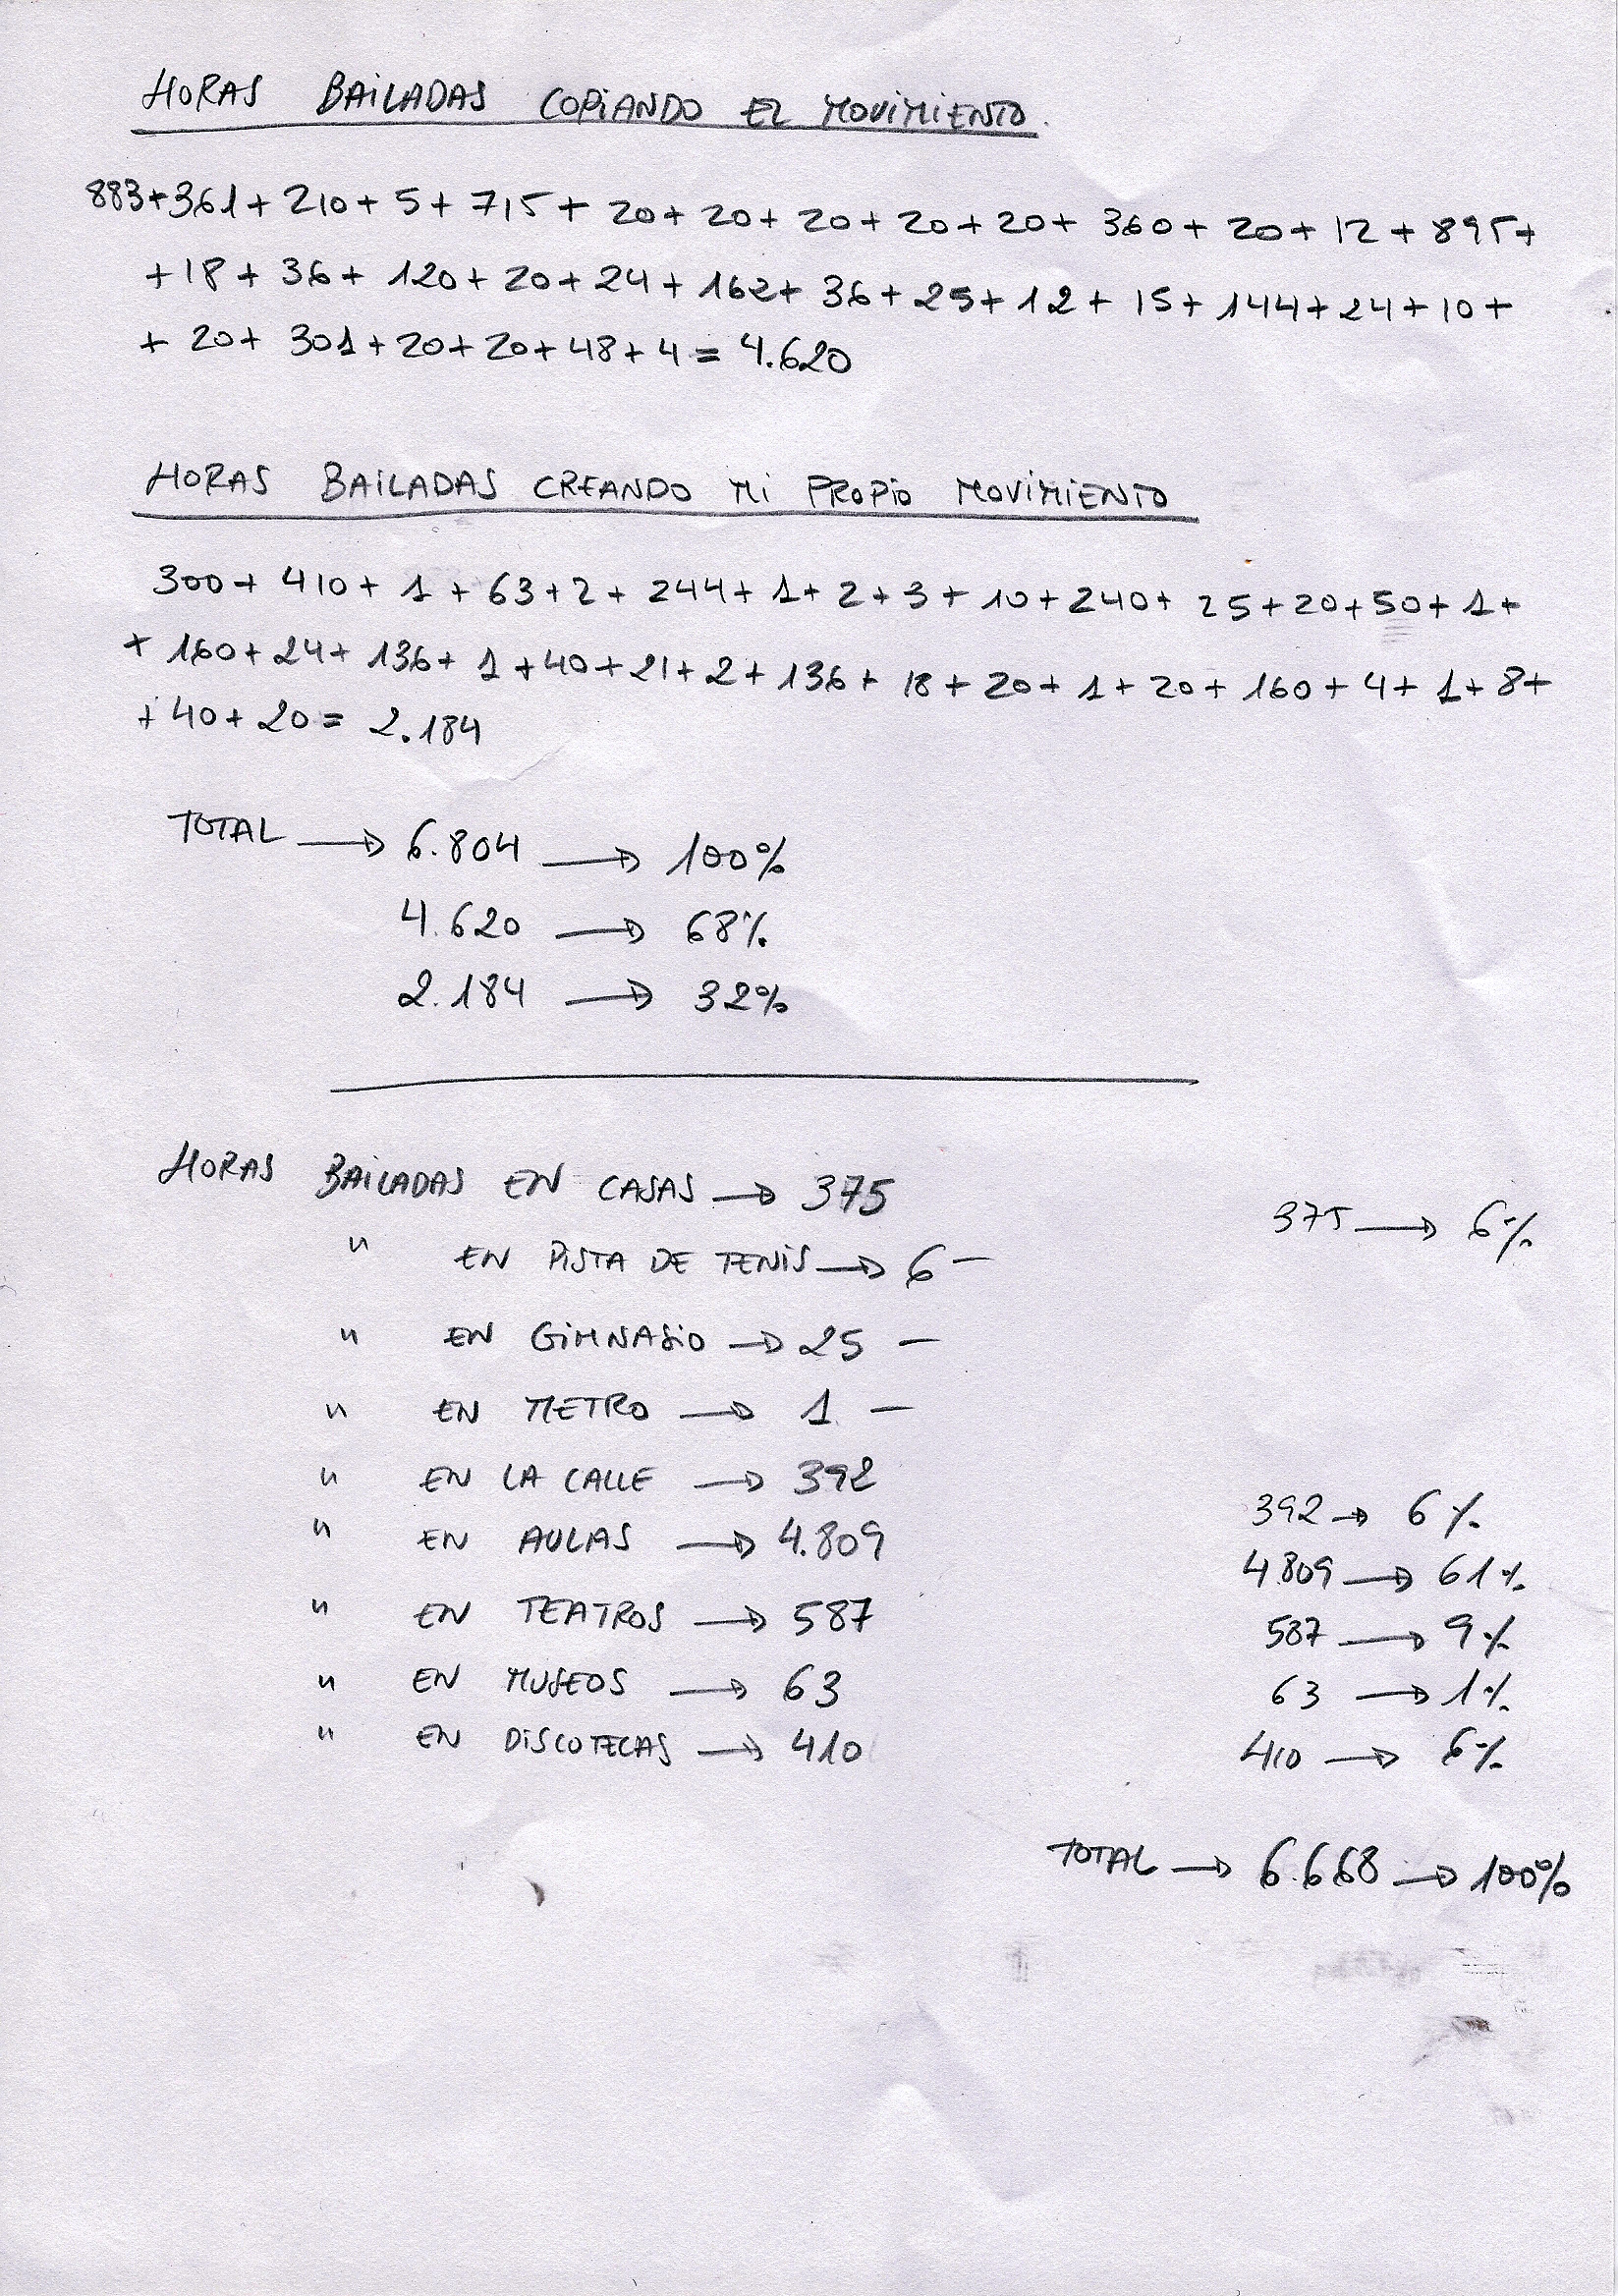 HORAS BAILADAS COPIANDO EL MOVIMIENTO.
883+361+210+5+715+20+20+20+20+20+360+20+12+895+
+18+36+120+20+24+162+36+25+12+15+144+24+10+
+20+301+20+20+48+4=4.620
HORAS BAILADAS CREANDO MI PROPIO MOVIMIENTO
300+410+1+63+2+244+1+2+3+10+240+25+20+50+1+
+160+24+136+1+40+21+2+136+18+20+1+20+160+4+1+8+
+40+20=2.184
TOTAL → 6.804 → 100%
4.620 → 68%
2.184 → 32%
HORAS BAILADAS EN CASAS → 375 375 → 6%
" EN PISTA DE TENIS → 6 —
" EN GIMNASIO → 25 —
" EN METRO → 1 —
" EN LA CALLE → 392 392 → 6%
" EN AULAS → 4.809 4.809 → 61%
" EN TEATROS → 587 587 → 9%
" EN MUSEOS → 63 63 → 1%
" EN DISCOTECAS → 410 410 → 6%
TOTAL → 6.668 → 100%